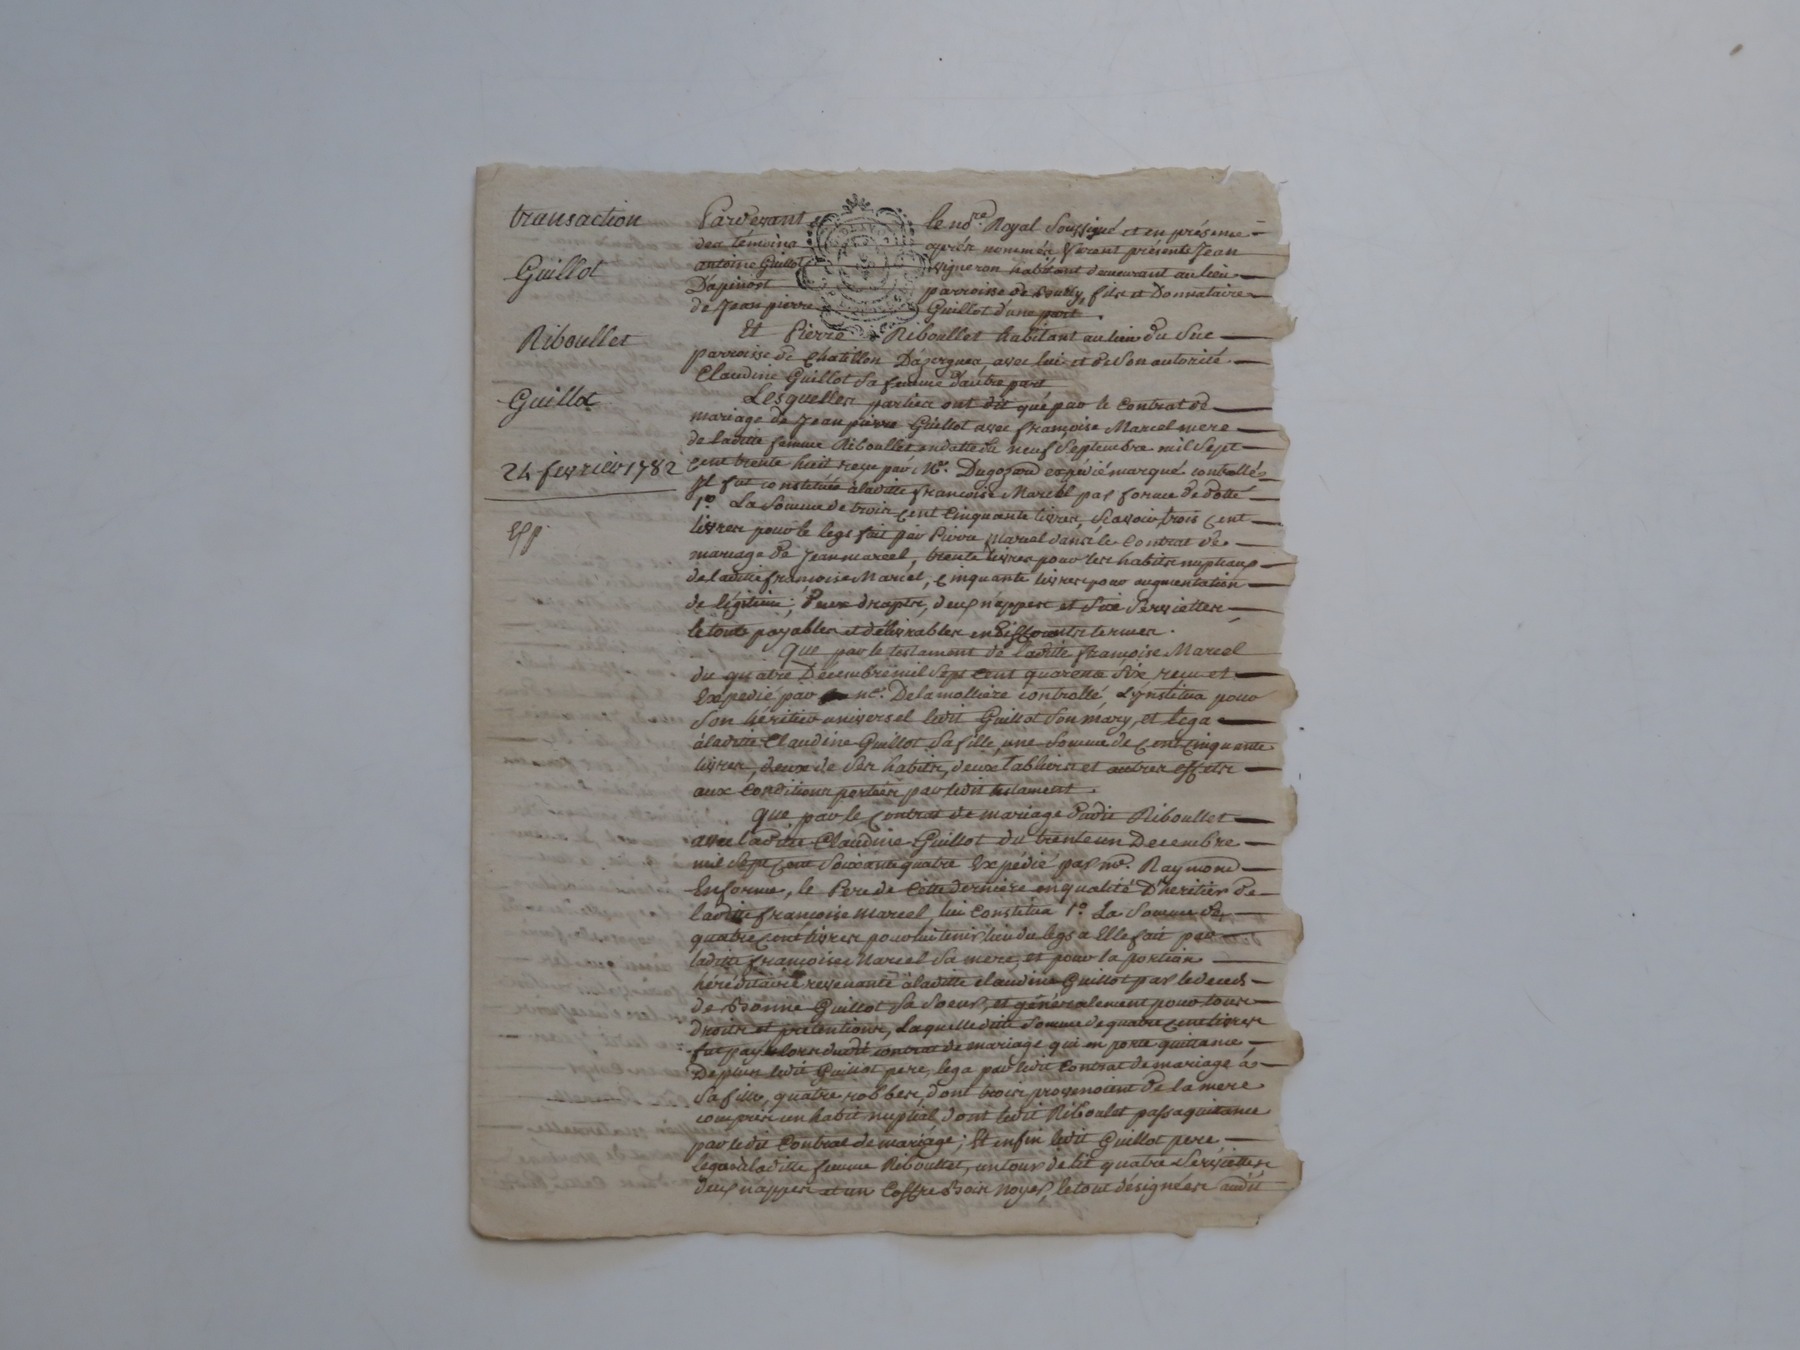 transaction
Guillot
Riboullet
Guillot
24 fevrier 1782
Exp
Pardevant le nore. Royal Soussigné et en présence
des témoins après nommés furent présents Jean
antoine Guillot vigneron habitant demeurant au lieu
Dapinost parroisse de Bully, fils et Donnataire
de Jean pierre Guillot d'une part.
Et Pierre Riboullet habitant au lieu du Suc
parroisse de Chatillon Dazergues, avec lui et de Son autorité
Claudine Guillot Sa femme d'autre part
Lesquelles parties ont dit que par le Contrat de
mariage de Jean pierre Guillot avec françoise Marcel mere
de laditte femme Riboullet en datte du neuf Septembre mil Sept
cent trente huit reçu par Me. expédié marqué controllé
Il fut constituée à laditte françoise Marcel par forme de dotte
1o. La Somme de trois cent Cinquante livres, Scavoir trois cent
livres pour le legs fait par Pierre Marcel dans le Contrat de
mariage de Jean marcel, trente livres pour les habits nuptiaux
de laditte françoise Marcel, cinquante livres pour augmentation
de légitime; Deux draps, deux nappes et Six Serviettes
le toute payables et délivrables en differents termes.
Que par le testament de laditte françoise Marcel
du quatre Décembre mil Sept Cent quarente Six reçu et
Expedié par me. Delamolliere controllé Elle institua pour
Son héritier universel ledit Guillot Son mary, et lega
à laditte Claudine Guillot Sa fille, une Somme de Cent Cinquante
livres, deux de Ses habits, deux tabliers et autres effets
aux Conditions portées par ledit testament.
Que par le Contrat de mariage dudit Riboullet
avec laditte Claudine Guillot du trente un Decembre
mil Sept Cent Soixante quatre Expédié par me. Raymond
En forme, le Pere de Cette derniere en qualité D'heritier de
laditte françoise Marcel, lui Constitua 1o. La Somme de
quatre Cent livres pour lui tenir lieu du legs a Elle fait par
laditte françoise Marcel Sa mere, et pour la portion
héréditaire revenante à laditte Claudine Guillot par le deceds
de Guillot Sa Soeur, et généralement pour tous
Droits et pretentions, Laquelle ditte Somme de quatre Cent livres
fut payé lors dudit contrat de mariage qui en porte quittance
De plus ledit Guillot pere, lega par ledit Contrat de mariage à
Sa fille, quatre robbes, dont trois provenoient de la mere
compris un habit nuptial, dont ledit Riboulet passa quittance
par ledit Contrat de mariage; Et enfin ledit Guillot pere
légua à laditte femme Riboullet, un tour de lit quatre Serviettes
deux nappes et un Coffre Bois Noyer, le tout désignées audit